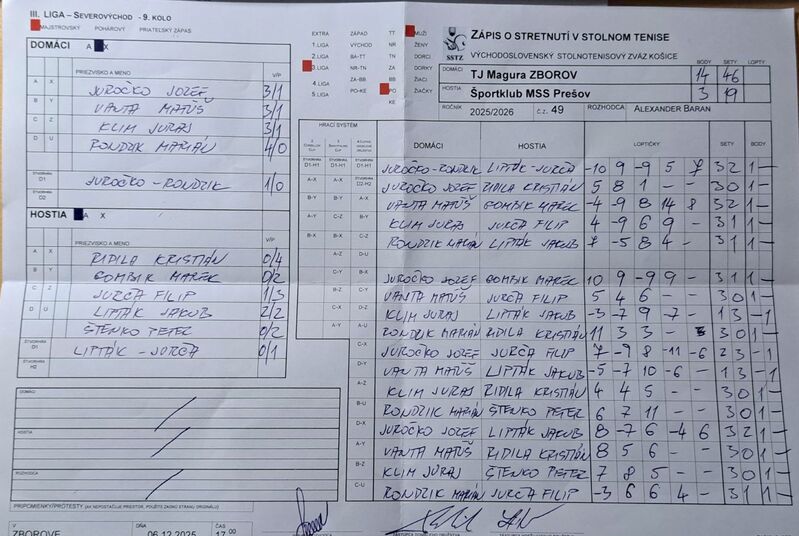 III. LIGA – SEVEROVÝCHOD - 9. KOLO
MAJSTROVSKÝ POHÁROVÝ PRIATEĽSKÝ ZÁPAS
DOMÁCI A X
PRIEZVISKO A MENO V/P
A X JUROČKO JOZEF 3/1
B Y VANTA MATÚŠ 3/1
C Z KLIM JURAJ 3/1
D U RONDZIK MARIÁN 4/0
ŠTVORHRA D1 JUROČKO - RONDZIK 1/0
D2
HOSTIA A X
PRIEZVISKO A MENO V/P
A X RIDILA KRISTIÁN 0/4
B Y GOMBIK MAREK 0/2
C Z JURČA FILIP 1/3
D U LIPTÁK JAKUB 2/2
ŠTENKO PETER 0/2
ŠTVORHRA D1 LIPTÁK - JURČA 0/1
ŠTVORHRA H2
DOMÁCI
HOSTIA
ROZHODCA
PRIPOMIENKY/PROTESTY (AK NEPOSTAČUJE PRIESTOR, POUŽITE ZADNÚ STRANU ORIGINÁLU)
V ZBOROVE DŇA 06.12.2025 ČAS 17:00
EXTRA ZÁPAD TT MUŽI
1.LIGA VÝCHOD NR ŽENY
2.LIGA BA-TT TN DORCI
3.LIGA NR-TN ZA DORKY
4.LIGA ZA-BB BB ŽIACI
5.LIGA PO-KE PO ŽIAČKY
KE
SSTZ
ZÁPIS O STRETNUTÍ V STOLNOM TENISE
VÝCHODOSLOVENSKÝ STOLNOTENISOVÝ ZVÄZ KOŠICE
BODY SETY LOPTY
DOMÁCI TJ Magura ZBOROV 14 46
HOSTIA Športklub MSS Prešov 3 19
ROČNÍK 2025/2026 č.z. 49 ROZHODCA ALEXANDER BARAN
HRACÍ SYSTÉM
DOMÁCI HOSTIA LOPTIČKY SETY BODY
JUROČKO-RONDZIK LIPTÁK-JURČA -10 9 -9 5 7 3 2 1 -
JUROČKO JOZEF RIDILA KRISTIÁN 5 8 1 - - 3 0 1 -
VANTA MATÚŠ GOMBIK MAREK -4 -9 8 14 8 3 2 1 -
KLIM JURAJ JURČA FILIP 4 -9 6 9 - 3 1 1 -
RONDZIK MARIÁN LIPTÁK JAKUB 7 -5 8 4 - 3 1 1 -
JUROČKO JOZEF GOMBIK MAREK 10 9 -9 9 - 3 1 1 -
VANTA MATÚŠ JURČA FILIP 5 4 6 - - 3 0 1 -
KLIM JURAJ LIPTÁK JAKUB -3 -7 9 -7 - 1 3 - 1
RONDZIK MARIÁN RIDILA KRISTIÁN 11 3 3 - 3 0 1 -
JUROČKO JOZEF JURČA FILIP 7 -9 8 -11 -6 2 3 - 1
VANTA MATÚŠ LIPTÁK JAKUB -5 -7 10 -6 - 1 3 - 1
KLIM JURAJ RIDILA KRISTIÁN 4 4 5 - - 3 0 1 -
RONDZIK MARIÁN ŠTENKO PETER 6 7 11 - - 3 0 1 -
JUROČKO JOZEF LIPTÁK JAKUB 8 -7 6 -4 6 3 2 1 -
VANTA MATÚŠ RIDILA KRISTIÁN 8 5 6 - - 3 0 1 -
KLIM JURAJ ŠTENKO PETER 7 8 5 - - 3 0 1 -
RONDZIK MARIÁN JURČA FILIP -3 6 6 4 - 3 1 1 -